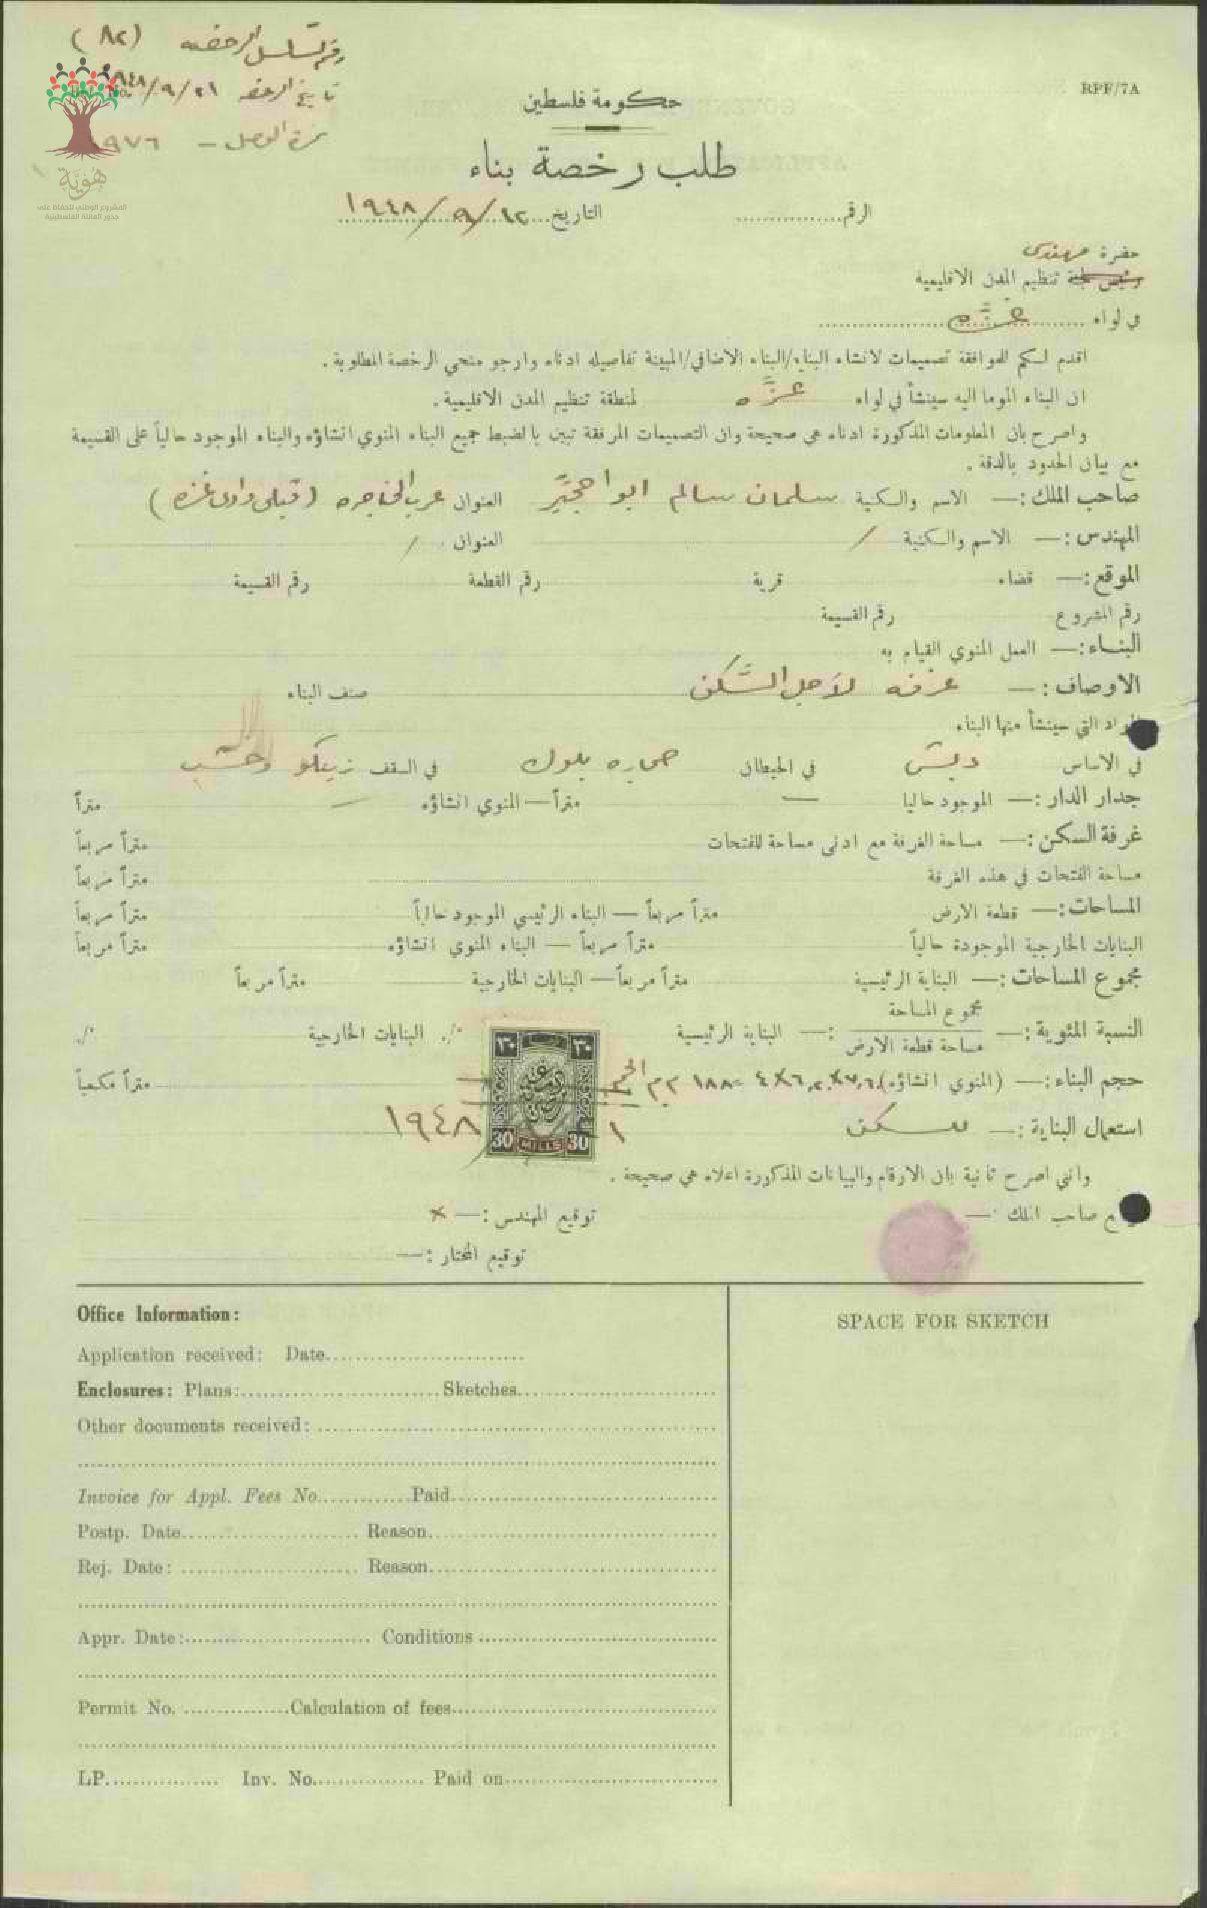 رقم تسلسل الرخصه (٨٢)
تاريخ الرخصه ٢١/٩/٩٤٨
نمرة الوصل - ٩٧٦
هوية
المشروع الوطني للحفاظ على
جذور العائلة الفلسطينية
RPF/7A
حكومة فلسطين
طلب رخصة بناء
الرقم.................. التاريخ ١٢/٩/١٩٤٨
حضرة مهندس
رئيس لجنة تنظيم المدن الاقليمية
في لواء غزّه
اقدم لكم للموافقة تصميمات لانشاء البناء/البناء الاضافي/المبينة تفاصيله ادناه وارجو منحي الرخصة المطلوبة .
ان البناء الموما اليه سينشأ في لواء غزّه لمنطقة تنظيم المدن الاقليمية .
واصرح بان المعلومات المذكورة ادناه هي صحيحة وان التصميمات المرفقة تبين بالضبط جميع البناء المنوي انشاؤه والبناء الموجود حالياً على القسيمة
مع بيان الحدود بالدقة .
صاحب الملك :— الاسم والكنية سلمان سالم ابو حجيّر العنوان عرب الخناجره (قبلي وادي غزه)
المهندس :— الاسم والكنية / العنوان /
الموقع :— قضاء قرية رقم القطعة رقم القسيمة
رقم المشروع رقم القسيمة
البناء :— العمل المنوي القيام به
الاوصاف :— غرفه لاجل السّكن صنف البناء
المواد التي سينشأ منها البناء
في الاساس دبش في الحيطان حجاره بلوك في السقف زينكو وخشب
جدار الدار :— الموجود حاليا — متراً — المنوي انشاؤه — متراً
غرفة السكن :— مساحة الغرفة مع ادنى مساحة للفتحات متراً مربعاً
مساحة الفتحات في هذه الغرفة متراً مربعاً
المساحات :— قطعة الارض متراً مربعاً — البناء الرئيسي الموجود حالياً متراً مربعاً
البنايات الخارجية الموجودة حالياً متراً مربعاً — البناء المنوي انشاؤه متراً مربعاً
مجموع المساحات :— البناية الرئيسية متراً مربعاً — البنايات الخارجية متراً مربعاً
النسبة المئوية :— مجموع المساحة / مساحة قطعة الارض :— البناية الرئيسية ./. البنايات الخارجية ./.
حجم البناء :— (المنوي انشاؤه) متراً مكعباً
٣٠ ٣٠
30 MILLS 30
استعمال البناية :— للسكن ١٩٤٨
واني اصرح ثانية بان الارقام والبيانات المذكورة اعلاه هي صحيحة .
صاحب الملك :— توقيع المهندس :— ×
توقيع المختار :—
Office Information:
Application received: Date..........................
Enclosures: Plans:.......................... Sketches..........................
Other documents received: ..........................
Invoice for Appl. Fees No............. Paid..........................
Postp. Date.......................... Reason..........................
Rej. Date: .......................... Reason..........................
Appr. Date:.......................... Conditions ..........................
Permit No. ................Calculation of fees..........................
LP................. Inv. No................. Paid on..........................
SPACE FOR SKETCH